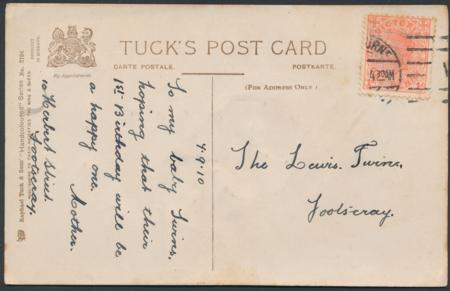 TUCK'S POST CARD
CARTE POSTALE.
POSTKARTE.
(FOR ADDRESS ONLY.)
By Appointment.
Raphael Tuck & Sons' "Handcoloured" Series No.
4.9.10
To my baby Twins.
hoping that their
1st Birthday will be
a happy one.
Mother.
Herbert Street
Footscray.
The Lewis Twins,
Footscray.
VICTORIA